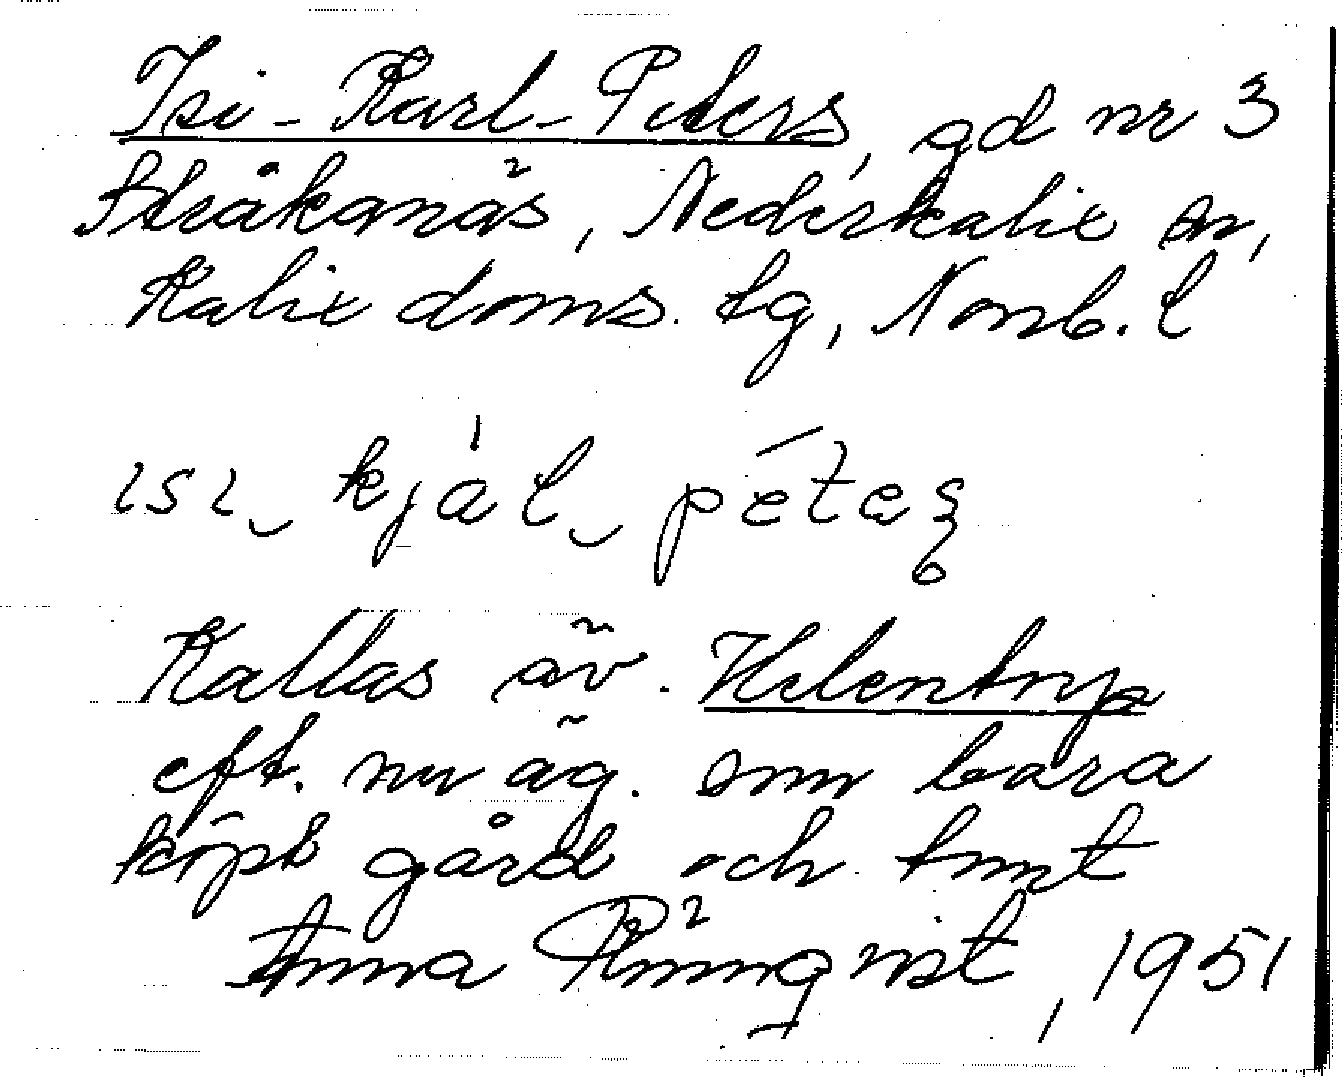 Isi-Karl-Peters, gd nr 3
Stråkanäs, Nederkalix sn,
Kalix doms. tg, Norrb. l
ısı‿ kjá l‿ péteȿ
Kallas äv. Helentorp
eft. nuv äg. som bara
köpt gård och tomt
Anna Rönnqvist, 1951